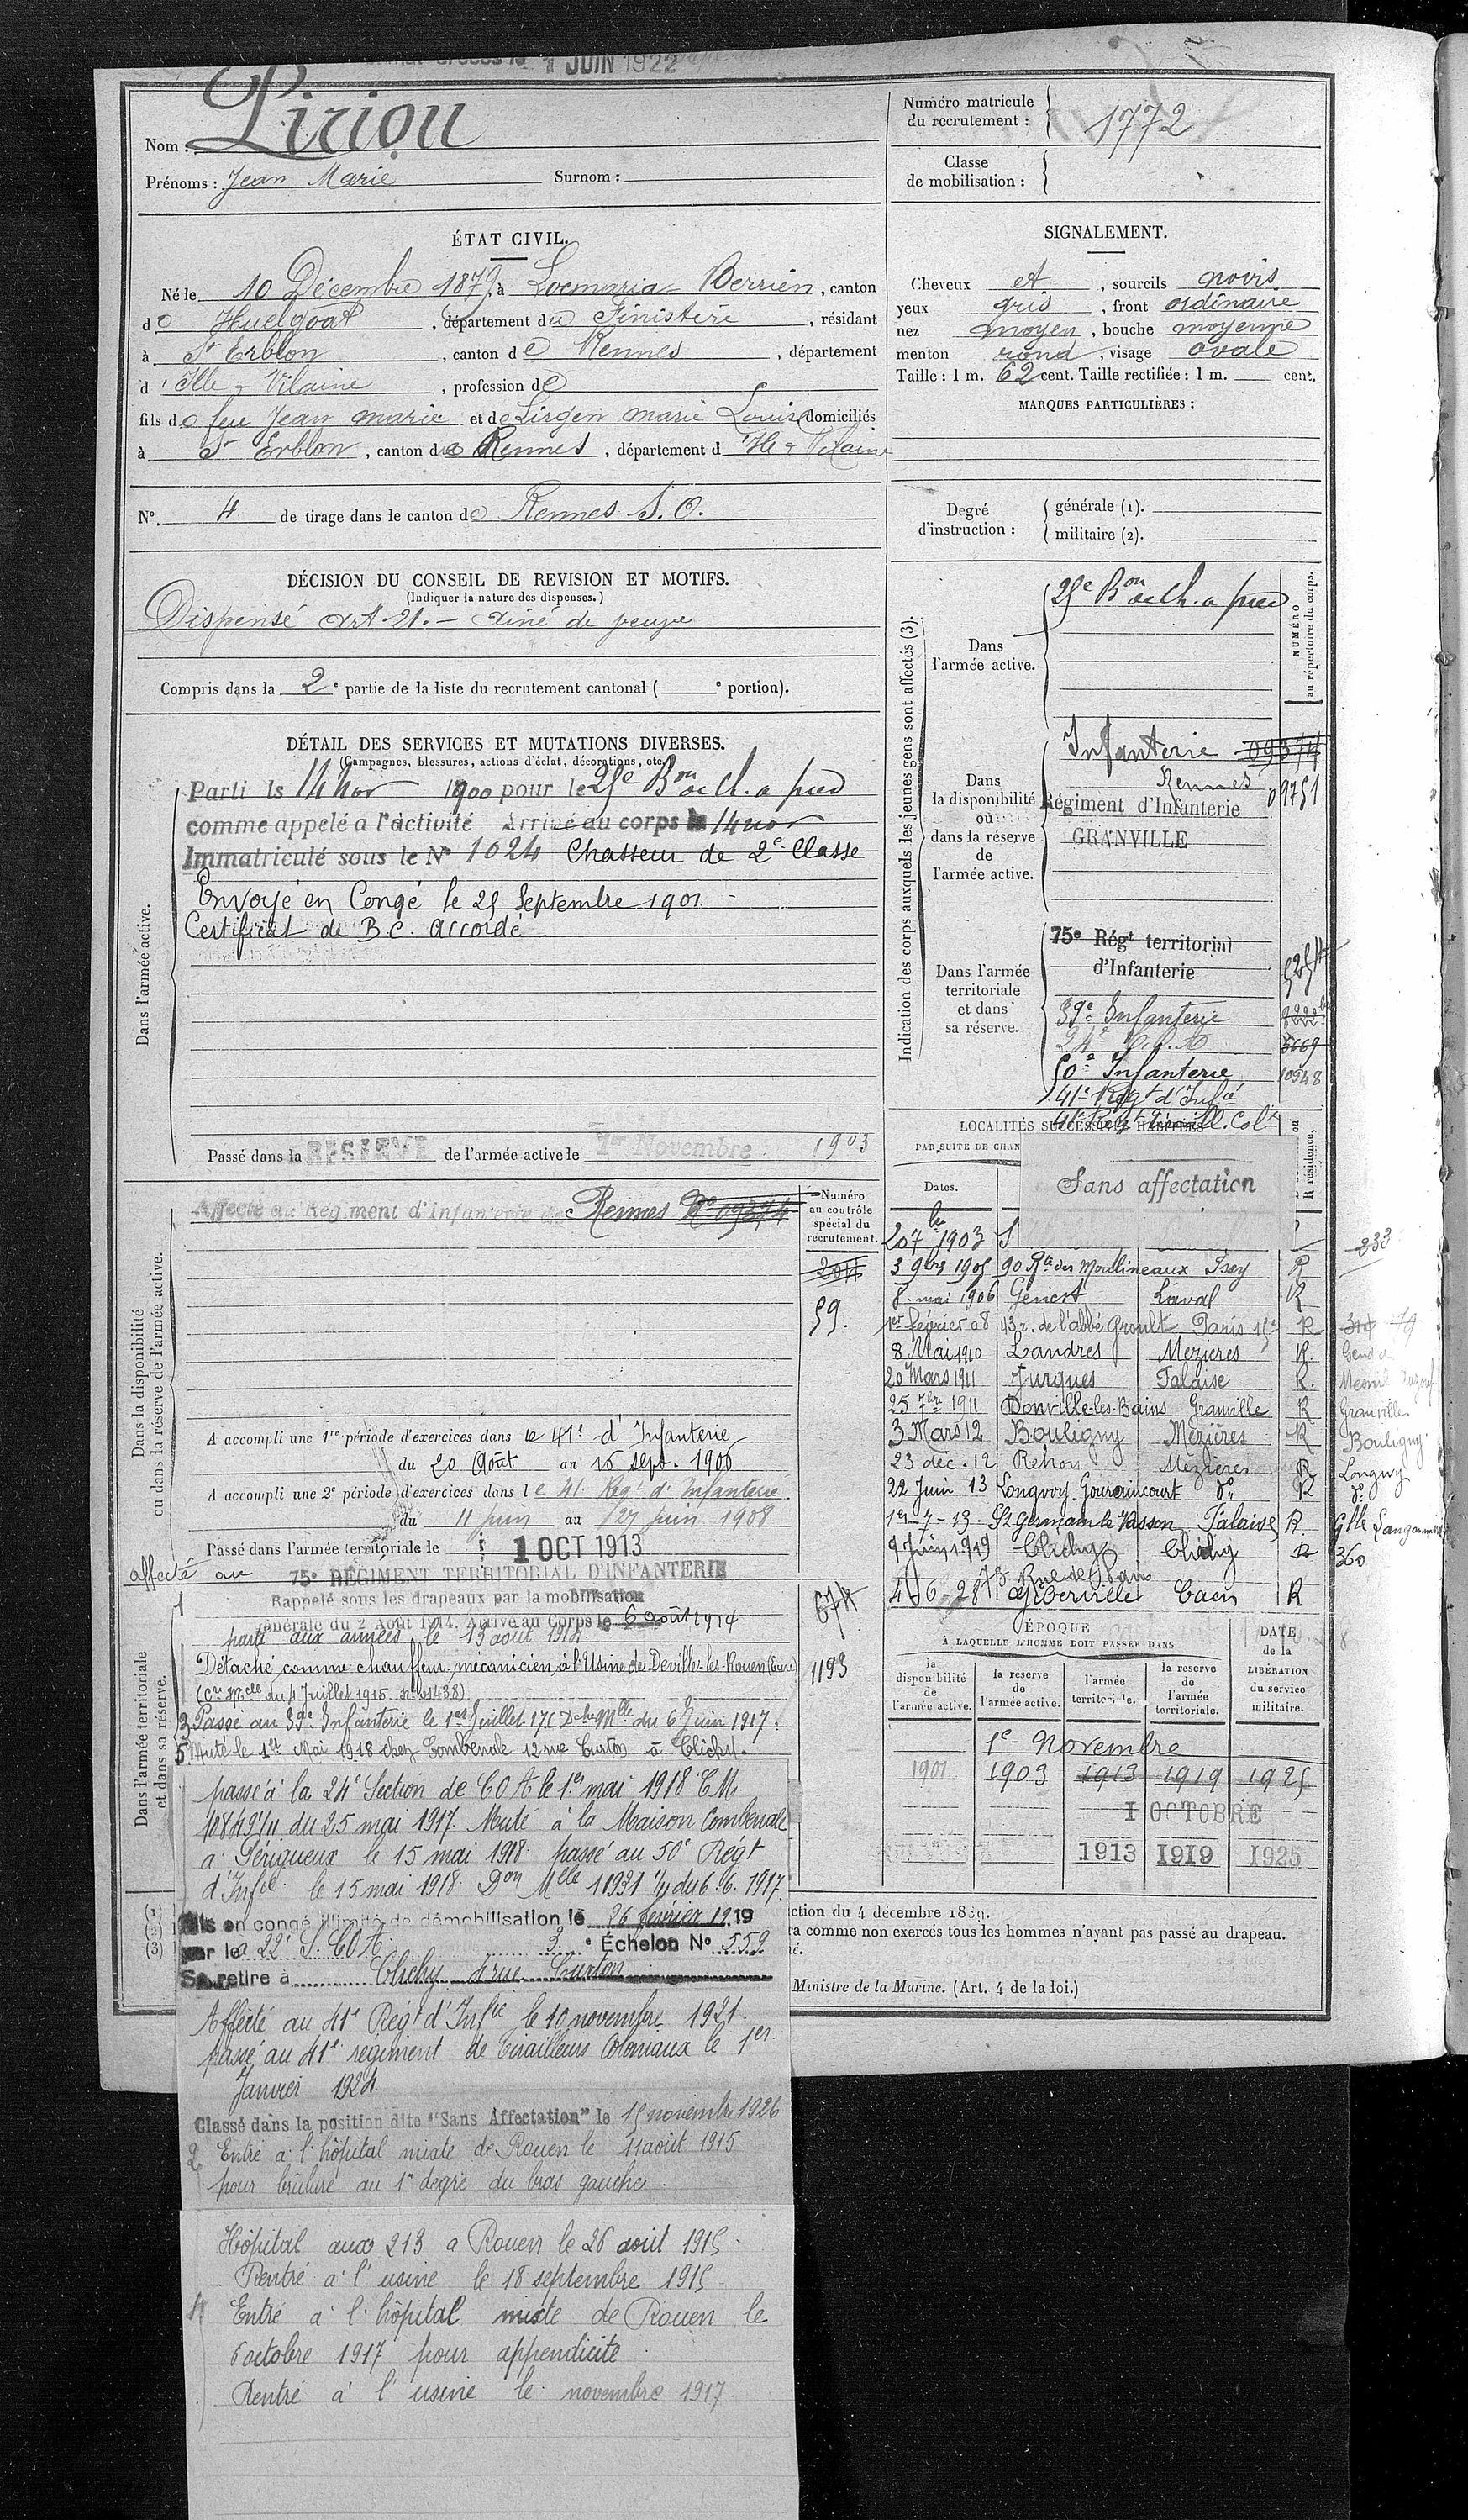 1 JUIN 1922
Nom : Piriou
Prénoms : Jean Marie Surnom :
Numéro matricule du recrutement : 1772
Classe de mobilisation :
ÉTAT CIVIL.
Né le 10 Décembre 1879, à Locmaria-Berrien, canton
de Huelgoat, département du Finistère, résidant
à St Erblon, canton de Rennes, département
d'Ille & Vilaine, profession de
fils de feu Jean marie et de Lirgen marie Louise domiciliés
à St Erblon, canton de Rennes, département d'Ille & Vilaine
N°. 4 de tirage dans le canton de Rennes S.O.
SIGNALEMENT.
Cheveux et, sourcils noirs
yeux gris, front ordinaire
nez moyen, bouche moyenne
menton rond, visage ovale
Taille : 1 m. 62 cent. Taille rectifiée : 1 m. cent.
MARQUES PARTICULIÈRES :
Degré d'instruction : générale (1).
militaire (2).
DÉCISION DU CONSEIL DE REVISION ET MOTIFS.
(Indiquer la nature des dispenses.)
Dispensé Art 21. - Ainé de veuve
Compris dans la 2e partie de la liste du recrutement cantonal ( e portion).
DÉTAIL DES SERVICES ET MUTATIONS DIVERSES.
(Campagnes, blessures, actions d'éclat, décorations, etc.)
Dans l'armée active.
Parti le 14 Nov 1900 pour le 25e Bon de Ch. a pied
comme appelé a l'activité Arrivé au corps le 14 nov
Immatriculé sous le N° 1024 Chasseur de 2e Classe
Envoyé en Congé le 25 Septembre 1901 -
Certificat de B.C. accordé
Passé dans la RESERVE de l'armée active le 1er Novembre 1903
Dans la disponibilité ou dans la réserve de l'armée active.
Affecté au Régiment d'Infanterie de Rennes No 09374
Numéro au contrôle spécial du recrutement.
59.
A accompli une 1re période d'exercices dans le 41e d'Infanterie
du 20 Août au 16 sept. 1906
A accompli une 2e période d'exercices dans le 41. Regt d'Infanterie
du 11 juin au 27 juin 1908
Passé dans l'armée territoriale le 1 OCT 1913
affecté au 75e RÉGIMENT TERRITORIAL D'INFANTERIE
Dans l'armée territoriale et dans sa réserve.
1 Rappelé sous les drapeaux par la mobilisation
générale du 2 Août 1914. Arrivé au Corps le 6 août 1914
parti aux armées le 13 août 1914.
Détaché comme chauffeur-mécanicien à l'Usine de Deville-les-Rouen (Eure)
(Cre Mlle du 4 Juillet 1915. No 21438)
1193
3 Passé au 39e Infanterie le 1er Juillet 17 (Dche Mlle du 6 Juin 1917.
5 Muté le 1er Mai 1918 chez Combenale 12 rue Curton à Clichy.
passé à la 24e Section de COA le 1er mai 1918 CM.
du 25 mai 1917. Muté à la Maison Combenale
à Périgueux le 15 mai 1918. passé au 50e Régt
d'Infie le 15 mai 1918. Don Mlle 11931 1/11 du 6.6.1917.
Mis en congé illimité de démobilisation le 26 février 1919
par le 22e S. COA. 3e Échelon N° 559
Se retire à Clichy 4 rue Curton
Affecté au 41e Régt d'Infie le 10 novembre 1921.
passé au 41e régiment de Tirailleurs Coloniaux le 1er
Janvier 1924.
Classé dans la position dite "Sans Affectation" le 15 novembre 1926
2 Entré à l'hôpital mixte de Rouen le 11 août 1915
pour brûlure au 1er degré du bras gauche.
Hôpital auxre 213 a Rouen le 26 août 1915.
Rentré à l'usine le 18 septembre 1915.
4 Entré à l'hôpital mixte de Rouen le
6 octobre 1917 pour appendicite
Rentré à l'usine le novembre 1917.
Indication des corps auxquels les jeunes gens sont affectés (3).
NUMÉRO au répertoire du corps.
Dans l'armée active.
25e Bon de Ch. a pied
Dans la disponibilité ou dans la réserve de l'armée active.
Infanterie 09374
Rennes
Régiment d'Infanterie 09751
GRANVILLE
Dans l'armée territoriale et dans sa réserve.
75e Régt territorial
d'Infanterie
39e Infanterie
24e C.O.A
50e Infanterie 10948
41e Regt d'Infie
41e Regt Tiraill. Colx
Sans affectation
LOCALITÉS SUCCESSIVES HABITÉES
PAR SUITE DE CHAN
Dates.
R résidence,
20 7bre 1903 S
3 9bre 1905 90 Rte des Moulineaux Issy R
8 mai 1906 Genest Laval R
1er février 08 43 r. de l'abbé Groult Paris 15e R
8 Mai 1910 Landres Mezieres R.
20 Mars 1911 Jurques Falaise R.
25 7bre 1911 Donville-les-Bains Granville R Granville
3 Mars 12 Bouligny Mézières R Bouligny
23 déc. 12 Rehon Mezieres R Longwy
22 Juin 13 Longwy-Gouraincourt do R do
1er-7-13. St Germain le Vasson Falaise R. Glle Langannerie
9 Juin 1919 Clichy Clichy R 360
73 Rue de Paris
4-6-28 Giberville Caen R
ÉPOQUE
À LAQUELLE L'HOMME DOIT PASSER DANS
la disponibilité de l'armée active.
la réserve de l'armée active.
l'armée territoriale.
la réserve de l'armée territoriale.
DATE de la LIBÉRATION du service militaire.
1e - Novembre
1901 1903 1913 1919 1925
1 OCTOBRE
1913 1919 1925
ction du 4 décembre 1889.
ra comme non exercés tous les hommes n'ayant pas passé au drapeau.
Ministre de la Marine. (Art. 4 de la loi.)